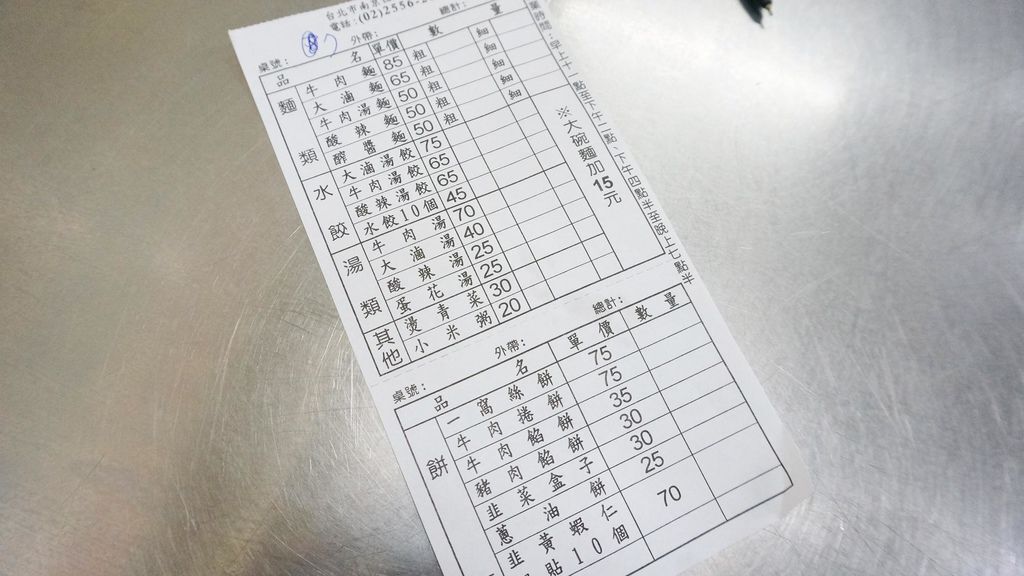 台北市南京
電話:(02)2556-2
桌號: 8 外帶: 總計:
品名 單價 數量
麵類
牛肉麵 85 粗 細
大滷麵 65 粗 細
牛肉湯麵 50 粗 細
酸辣麵 50 粗 細
醡醬麵 50 粗 細
水餃
大滷湯餃 75
牛肉湯餃 65
酸辣湯餃 65
水餃10個 45
湯類
牛肉湯 70
大滷湯 40
酸辣湯 25
蛋花湯 25
其他
燙青菜 30
小米粥 20
※大碗麵加15元
業時間:早上十一點至下午二點、下午四點半至晚上七點半
桌號: 外帶: 總計:
品名 單價 數量
餅
一窩絲餅 75
牛肉捲餅 75
牛肉餡餅 35
豬肉餡餅 30
韭菜盒子 30
蔥油餅 25
韭黃蝦仁 70
貼10個